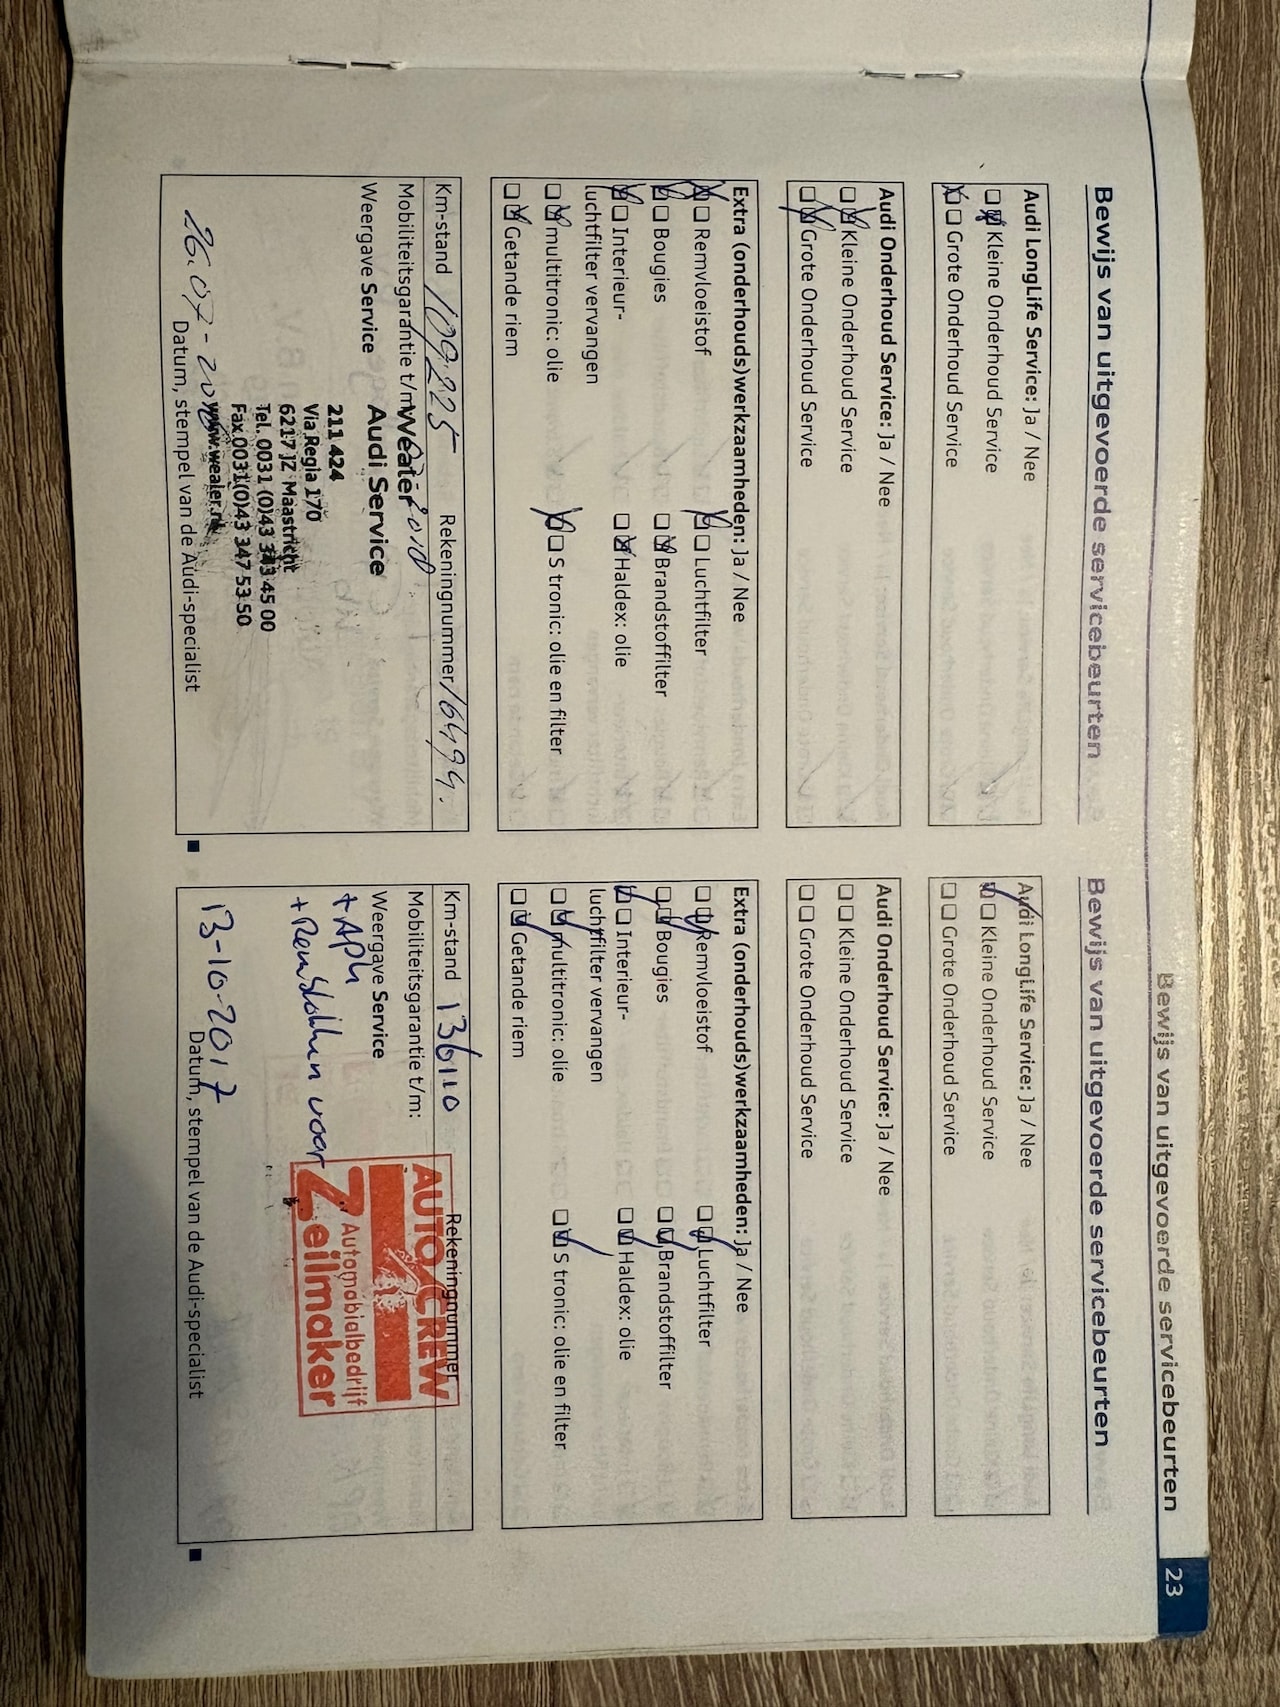 Bewijs van uitgevoerde servicebeurten
Bewijs van uitgevoerde servicebeurten
Audi LongLife Service: Ja / Nee
Kleine Onderhoud Service
Grote Onderhoud Service
Audi Onderhoud Service: Ja / Nee
Kleine Onderhoud Service
Grote Onderhoud Service
Extra (onderhouds)werkzaamheden: Ja / Nee
Remvloeistof Luchtfilter
Bougies Brandstoffilter
Interieur- Haldex: olie
luchtfilter vervangen
multitronic: olie S tronic: olie en filter
Getande riem
Km-stand 109225 Rekeningnummer 16499.
Mobiliteitsgarantie t/m
Weergave Service
Wealer
Audi Service
211 424
Via Regia 170
6217 JZ Maastricht
Tel. 0031 (0)43 343 45 00
Fax.0031(0)43 347 53 50
www.wealer.nl
26.07-2016
Datum, stempel van de Audi-specialist
Bewijs van uitgevoerde servicebeurten
Audi LongLife Service: Ja / Nee
Kleine Onderhoud Service
Grote Onderhoud Service
Audi Onderhoud Service: Ja / Nee
Kleine Onderhoud Service
Grote Onderhoud Service
Extra (onderhouds)werkzaamheden: Ja / Nee
Remvloeistof Luchtfilter
Bougies Brandstoffilter
Interieur- Haldex: olie
luchtfilter vervangen
multitronic: olie S tronic: olie en filter
Getande riem
Km-stand 136110 Rekeningnummer
Mobiliteitsgarantie t/m:
Weergave Service
+ APK
+ Remblokken voor
AUTO CREW
Automobielbedrijf
Zeilmaker
13-10-2017
Datum, stempel van de Audi-specialist
23